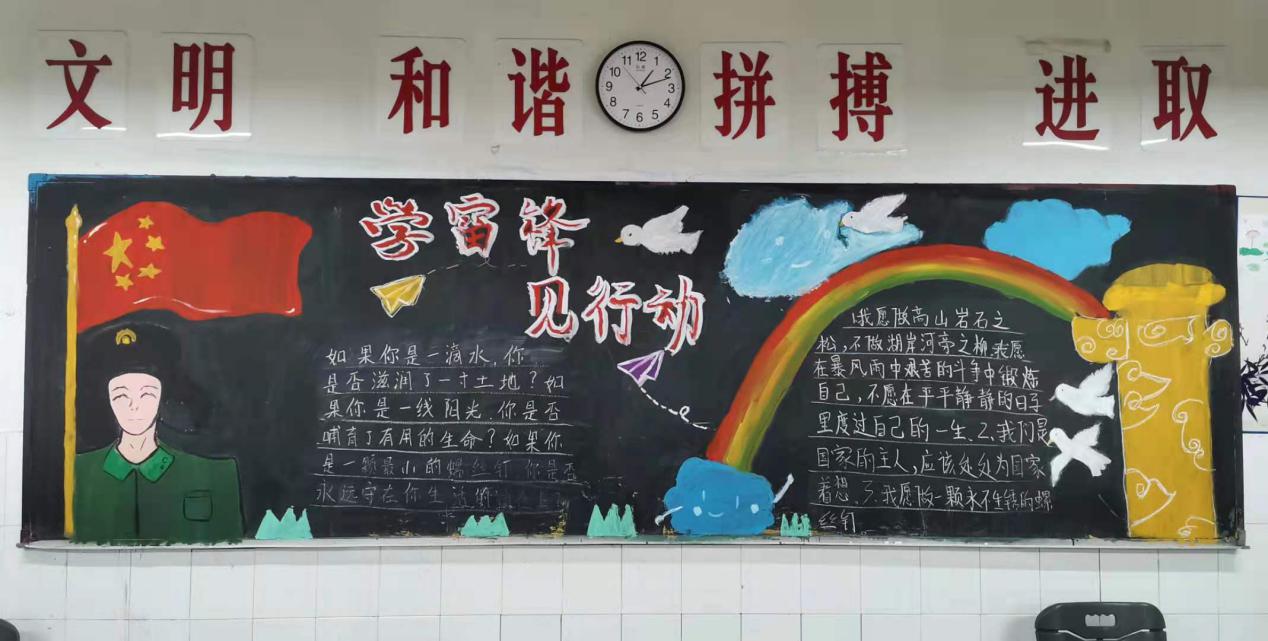 文明 和谐 拼搏 进取
12
1
2
3
4
5
6
7
8
9
10
11
学雷锋
见行动
如果你是一滴水,你
是否滋润了一寸土地?如
果你是一线阳光,你是否
哺育了有用的生命?如果你
是一颗最小的螺丝钉,你是否
永远守在你生活的
1我愿做高山岩石之
松,不做湖岸河旁之柳.我愿
在暴风雨中艰苦的斗争中锻炼
自己,不愿在平平静静的日子
里度过自己的一生、2、我们是
国家的主人,应该处处为国家
着想、3、我愿做一颗永不生锈的螺
丝钉.